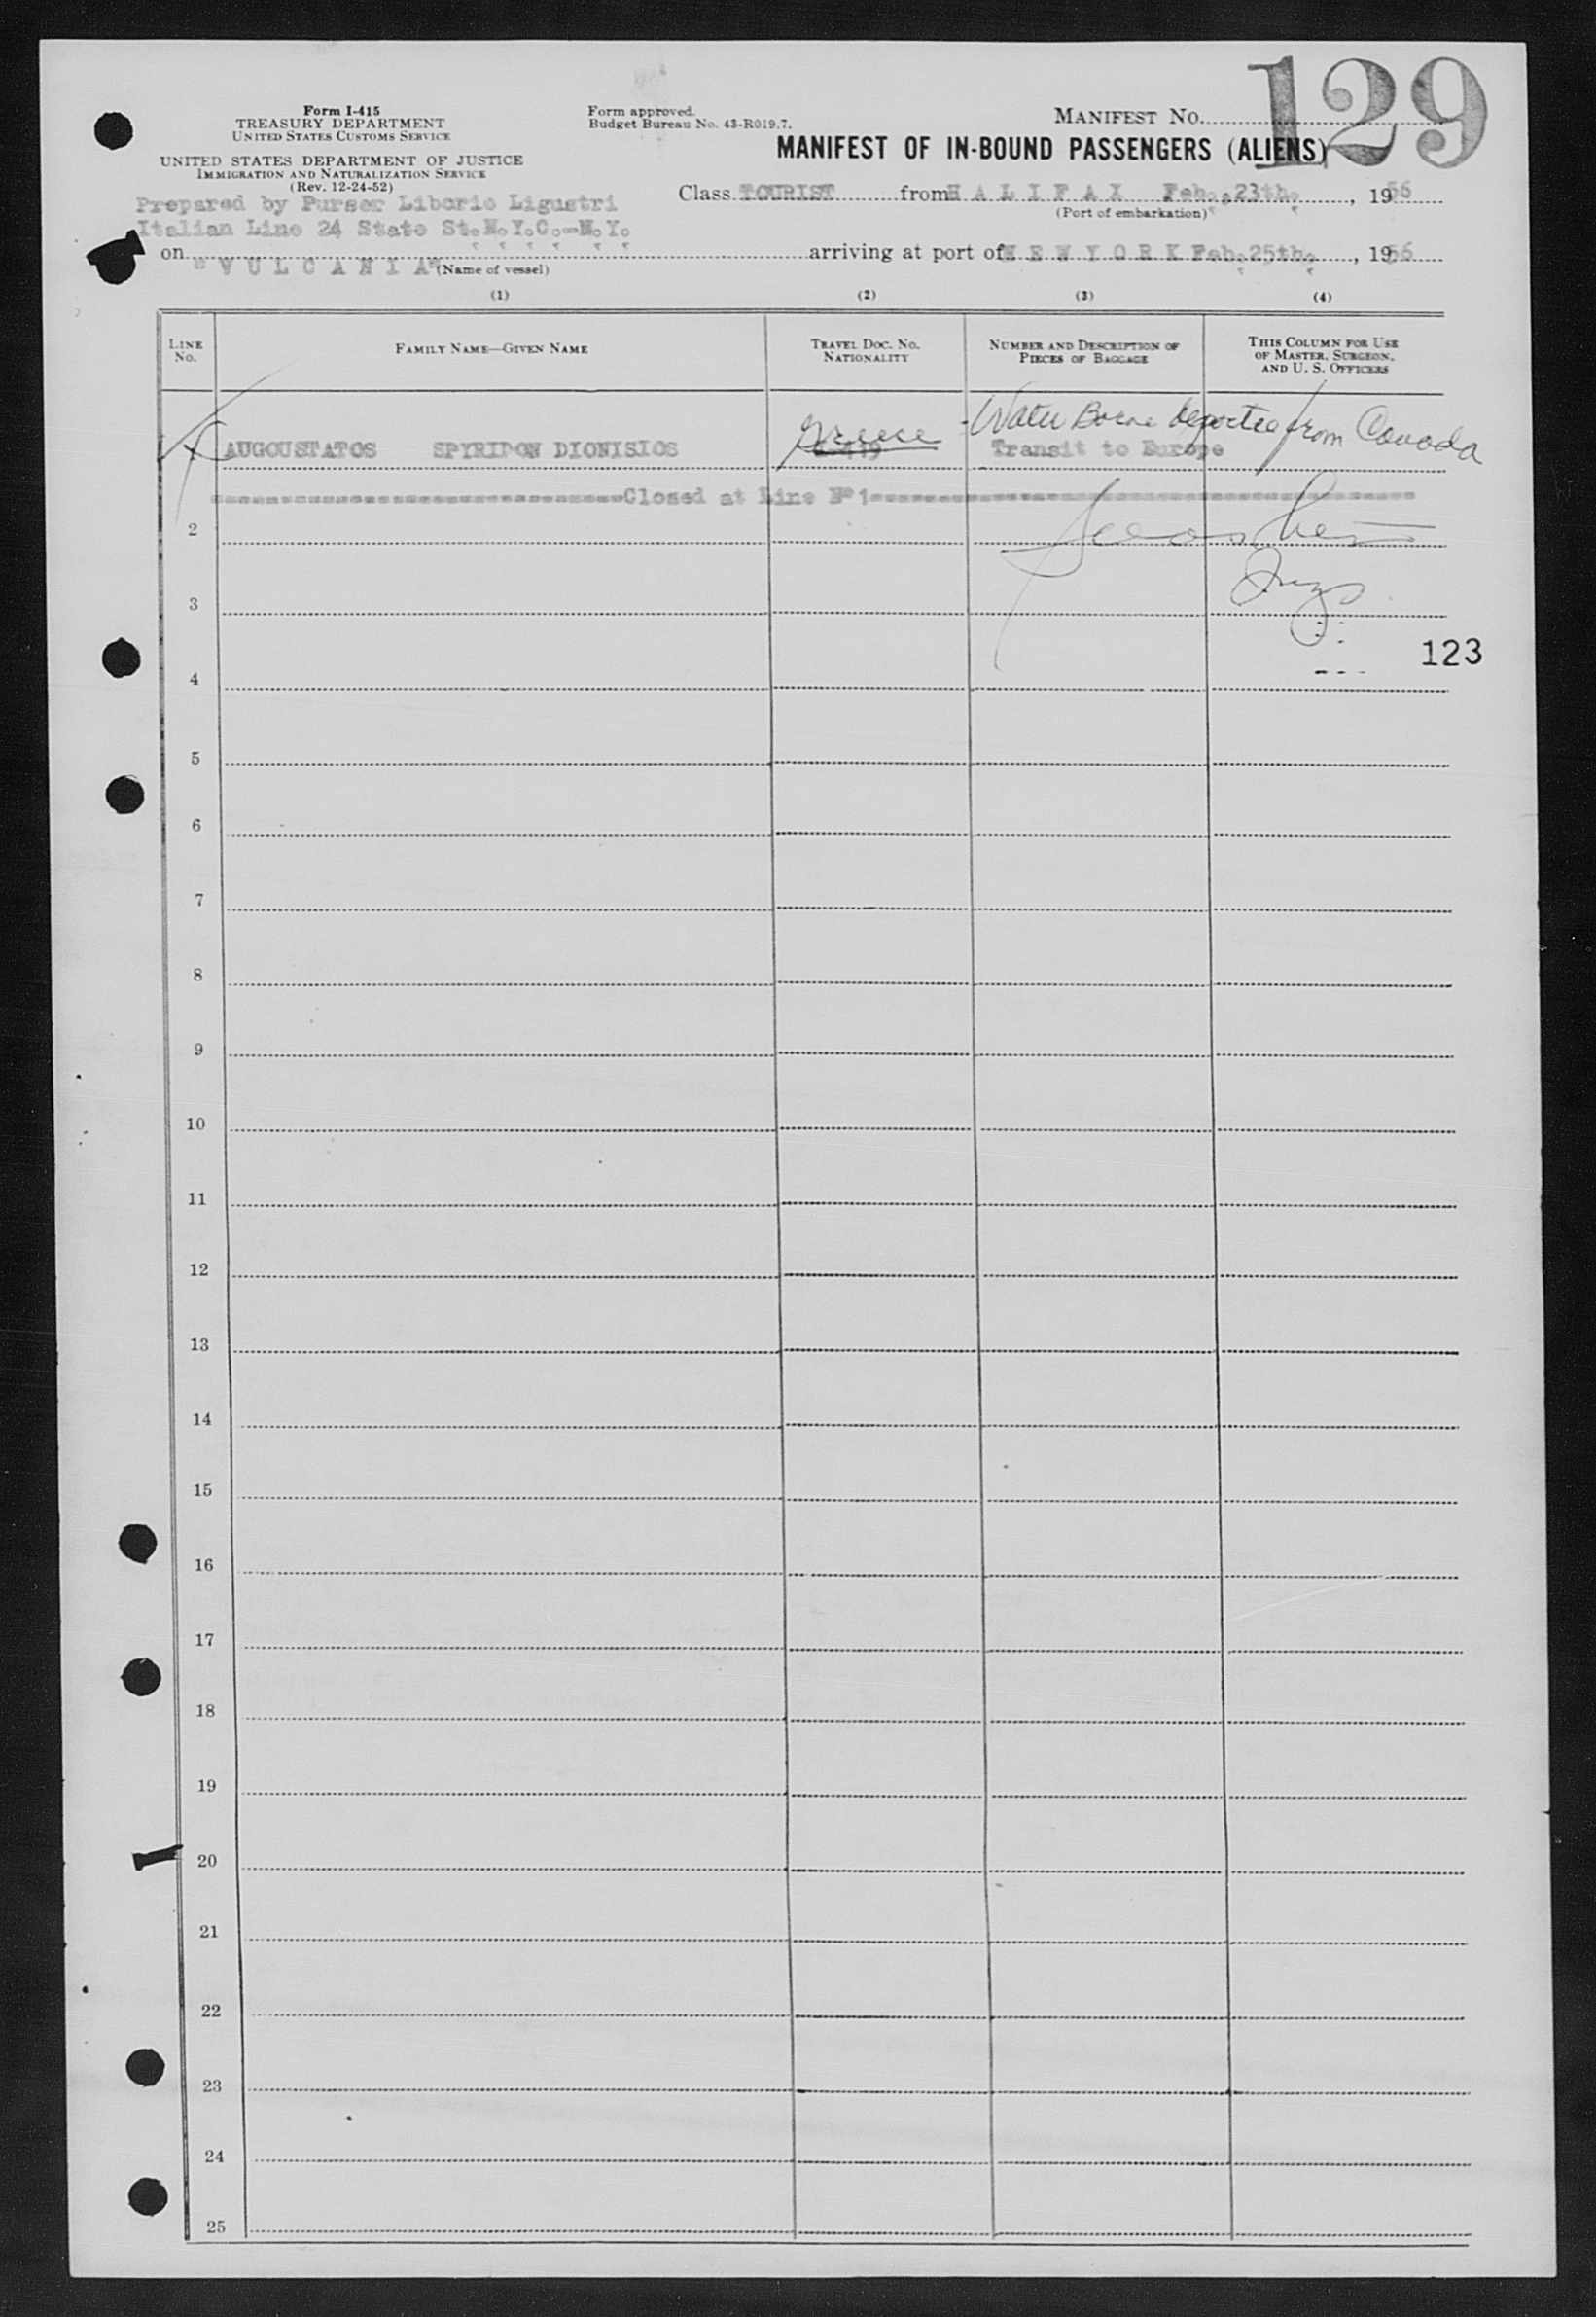 129
Form I-415
TREASURY DEPARTMENT
UNITED STATES CUSTOMS SERVICE
UNITED STATES DEPARTMENT OF JUSTICE
IMMIGRATION AND NATURALIZATION SERVICE
(Rev. 12-24-52)
Form approved.
Budget Bureau No. 43-R019.7.
MANIFEST NO.
MANIFEST OF IN-BOUND PASSENGERS (ALIENS)
Class TOURIST from H A L I F A X Feb., 23th, 1956
(Port of embarkation)
Prepared by Purser Liborio Ligustri
Italian Line 24 State St. N.Y.C.-N.Y.
on "V U L C A N I A" (Name of vessel) arriving at port of N E W Y O R K Feb, 25th, 1956
(1) (2) (3) (4)
LINE NO.
FAMILY NAME—GIVEN NAME
TRAVEL DOC. NO.
NATIONALITY
NUMBER AND DESCRIPTION OF
PIECES OF BAGGAGE
THIS COLUMN FOR USE
OF MASTER, SURGEON,
AND U. S. OFFICERS
Greece - Water Borne deportee from Canada
AUGOUSTATOS SPYRIDON DIONISIOS Transit to Europe
Closed at Line Nº 1
2
3
123
4
5
6
7
8
9
10
11
12
13
14
15
16
17
18
19
20
21
22
23
24
25